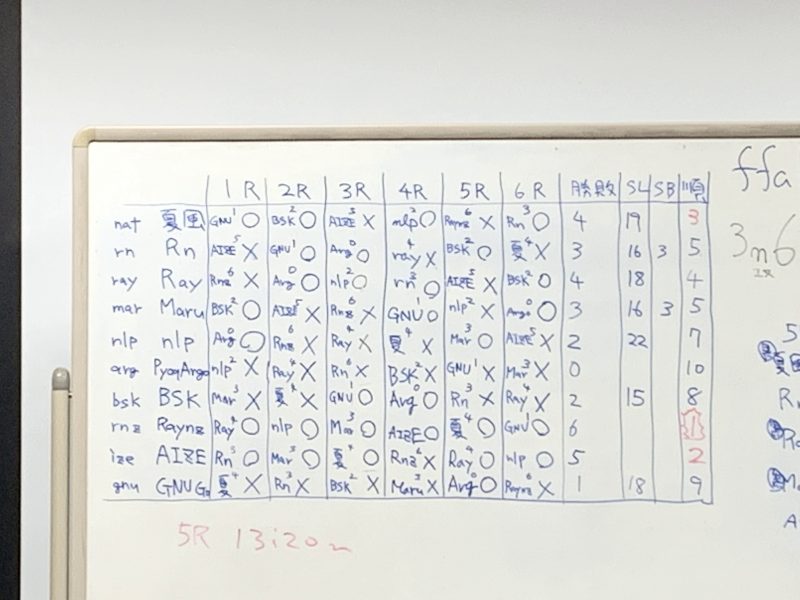 1R 2R 3R 4R 5R 6R 勝敗 SL SB 順
nat 夏風 GNU¹ ○ BSK² ○ AIZE⁵ × nlp² ○ Raynz⁶ × Rn³ ○ 4 19 3
rn Rn AIZE⁵ × GNU¹ ○ Arg⁰ ○ ray⁴ × BSK² ○ 夏⁴ × 3 16 3 5
ray Ray Rnz⁶ × Arg⁰ ○ nlp² ○ rn³ ○ AIZE⁵ × BSK² ○ 4 18 4
mar Maru BSK² ○ AIZE⁵ × Rnz⁶ × GNU¹ ○ nlp² × Argo⁰ ○ 3 16 3 5
nlp nlp Arg⁰ ○ Rnz⁶ × Ray⁴ × 夏⁴ × Mar³ ○ AIZE⁵ × 2 22 7
arg PyoqArgo nlp² × Ray⁴ × Rn³ × BSK² × GNU¹ × Mar³ × 0 10
bsk BSK Mar³ × 夏⁴ × GNU¹ ○ Arg⁰ ○ Rn³ × Ray⁴ × 2 15 8
rnz Raynz Ray⁴ ○ nlp ○ Mar³ ○ AIZE ○ 夏⁴ ○ GNU¹ ○ 6 1
ize AIZE Rn³ ○ Mar³ ○ 夏⁴ ○ Rnz⁶ × Ray⁴ ○ nlp ○ 5 2
gnu GNU 夏⁴ × Rn³ × BSK² × Maru³ × Arg⁰ ○ Raynz⁶ × 1 18 9
5R 13:20~
ffa
3n6